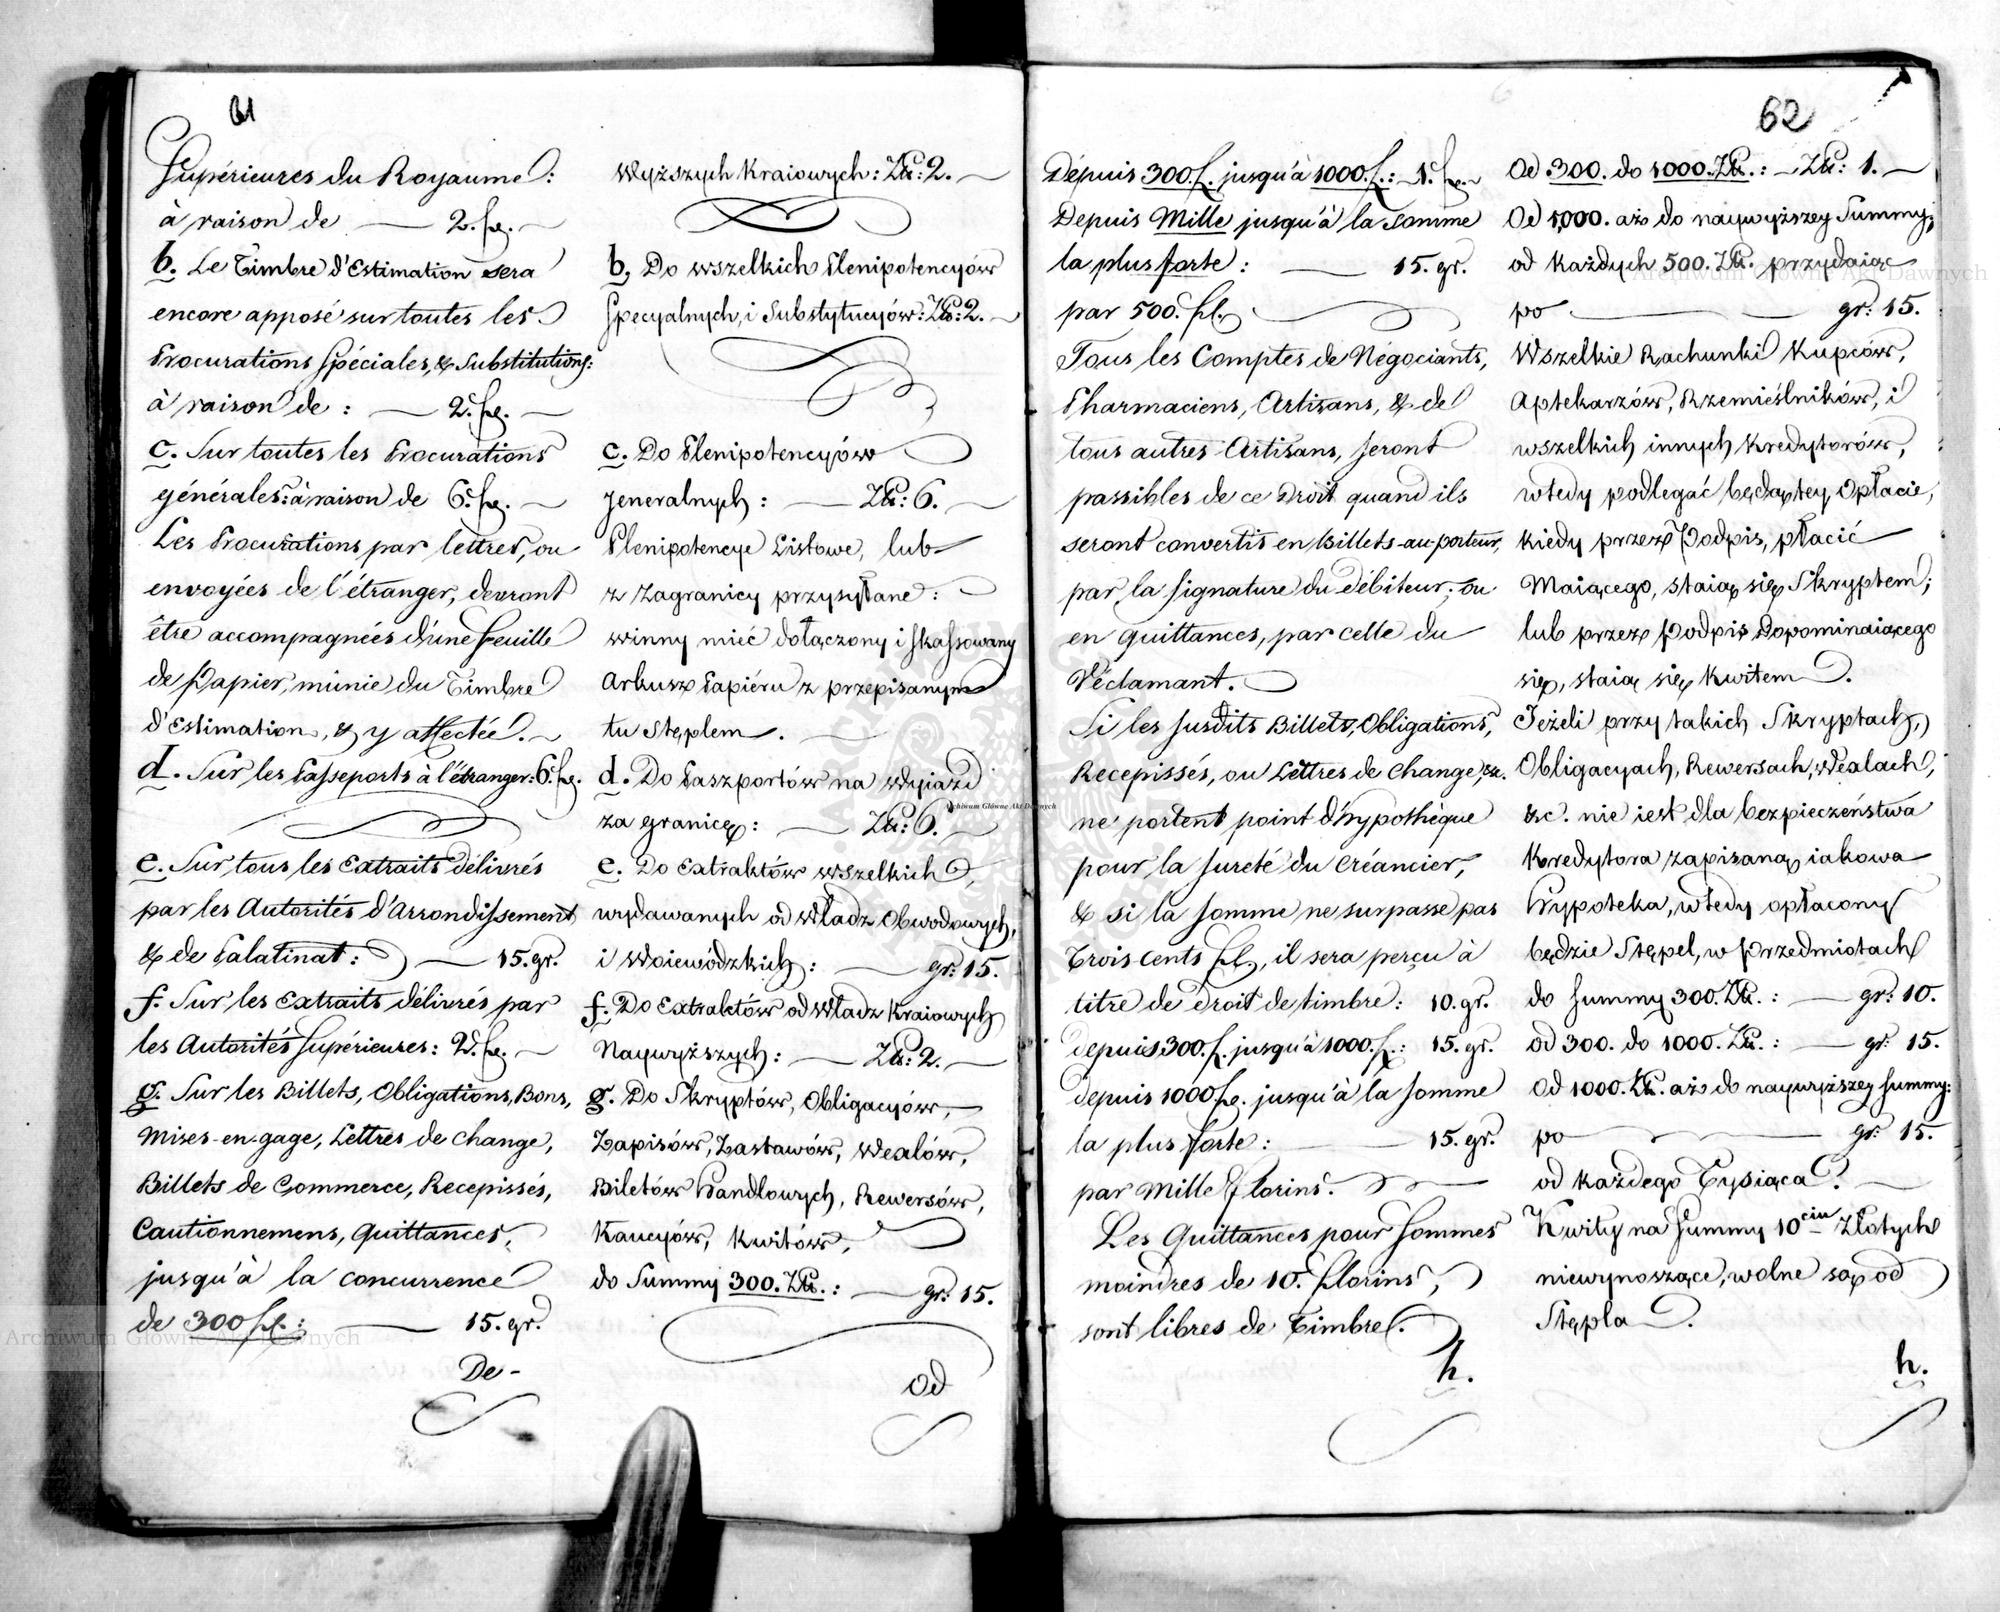 61
Supérieures du Royaume:
à raison de — 2. fl. —
b. Le Timbre d'Estimation sera
encore apposé sur toutes les
Procurations spéciales, & Substitutions:
à raison de: — 2. fl. —
c. Sur toutes les Procurations
générales: à raison de 6. fl. —
Les Procurations par lettres, ou
envoyées de l'étranger, devront
être accompagnées d'une feuille
de Papier, munie du Timbre
d'Estimation, & y affectée. —
d. Sur les Passeports à l'étranger: 6. fl.
e. Sur tous les Extraits délivrés
par les Autorités d'Arrondissement
& de Palatinat: — 15. gr.
f. Sur les Extraits délivrés par
les Autorités supérieures: 2. fl. —
g. Sur les Billets, Obligations, Bons,
Mises-en-gage, Lettres de Change,
Billets de Commerce, Recepissés,
Cautionnemens, Quittances,
jusqu'à la concurrence
de 300 fl.: — 15. gr.
De-
wyższych Kraiowych: Zł: 2. —
b, Do wszelkich Plenipotencyów
specyalnych, i Substytucyów: Zł: 2. —
c. Do Plenipotencyów
jeneralnych: — Zł: 6. —
Plenipotencye Listowe, lub
z Zagranicy przysyłane:
winny mieć dołączony i skassowany
Arkusz Papiéru z przepisanym
tu Stęplem. —
d. Do Paszportów na wyiazd
za granicę: — Zł: 6. —
e. Do Extraktów wszelkich,
wydawanych od Władz Obwodowych,
i Woiewódzkich: — gr: 15.
f. Do Extraktów od Władz Kraiowych
Naywyższych: — Zł: 2. —
g. Do Skryptów, Obligacyów, —
Zapisów, Zastawów, Wexlów,
Biletów Handlowych, Rewersów,
Kaucyów, Kwitów,
do Summy 300. Zł.: — gr: 15.
od
62
Dépuis 300. f. jusqu'à 1000. f.: — 1. fl. —
Depuis Mille jusqu'à la somme
la plus forte: — 15. gr.
par 500. fl.
Tous les Comptes de Négociants,
Pharmaciens, Artisans, & de
tous autres Artisans, seront
passibles de ce Droit quand ils
seront convertis en Billets-au-porteur,
par la signature du débiteur; ou
en quittances, par celle du
Réclamant.
Si les susdits Billets, Obligations,
Recepissés, ou Lettres de Change, &c.
ne portent point d'hypothèque
pour la sureté du Créancier,
& si la somme ne surpasse pas
Trois cents fl., il sera perçu à
titre de droit de timbre: 10. gr.
depuis 300. f. jusqu'à 1000. f.: 15. gr.
depuis 1000 fl. jusqu'à la somme
la plus forte: — 15. gr.
par Mille florins. —
Les Quittances pour sommes
moindres de 10. florins,
sont libres de Timbre.
h.
Od 300. do 1000. Zł.: — Zł: 1. —
Od 1,000. aż do naywyższey Summy,
od każdych 500. Zł. przydaiąc
po — gr: 15.
Wszelkie Rachunki Kupców,
Aptekarzów, Rzemieślników, i
wszelkich innych Kredytorów,
wtedy podlegać będą tey Opłacie,
kiedy przez Podpis, płacić —
Maiącego, staią się Skryptem;
lub przez Podpis Dopominaiącego
się, staią się Kwitem.
Jeżeli przy takich Skryptach,
Obligacyach, Rewersach, Wexlach,
&c. nie iest dla bezpieczeństwa
Kredytora zapisaną iakowa
Hypoteka, wtedy opłacony
będzie Stępel, w Przedmiotach
do Summy 300. Zł.: — gr: 10.
od 300. do 1000. Zł.: — gr: 15.
Od 1000. Zł. aż do naywyższey summy:
po — gr: 15.
od każdego Tysiąca. —
Kwity na Summy 10ciu Złotych
niewynoszące, wolne są od
Stępla.
h.
Archiwum Główne Akt Dawnych
Archiwum Główne Akt Dawnych
Archiwum Główne Akt Dawnych